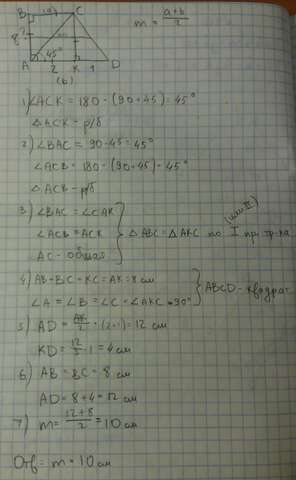 B (a) C
m = a+b/2
8
45°
A 2 K 1 D
(b)
1) ∠ACK = 180 - (90+45) = 45°
△ACK - р/б
2) ∠BAC = 90-45 = 45°
∠ACB = 180 - (90+45) = 45°
△ACB - р/б
3) ∠BAC = ∠CAK
∠ACB = ACK
AC - общая
△ABC = △AKC по I (или II) пр. тр-ка
4) AB=BC=KC=AK=8 см
∠A = ∠B = ∠C = ∠AKC = 90°
ABCD - квадрат
5) AD = AK/2 · (2+1) = 12 см
KD = 12/3 · 1 = 4 см
6) AB = BC = 8 см
AD = 8+4 = 12 см
7) m = 12+8/2 = 10 см
Отв = m = 10 см